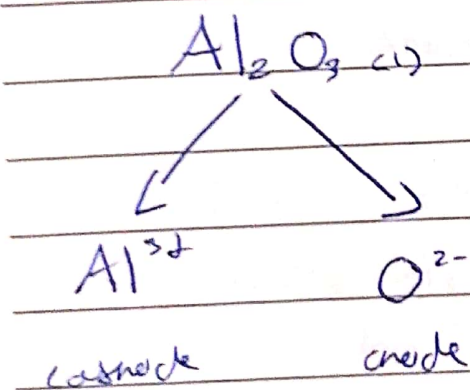 Al₂O₃ (l)
Al³⁺ O²⁻
cathode anode